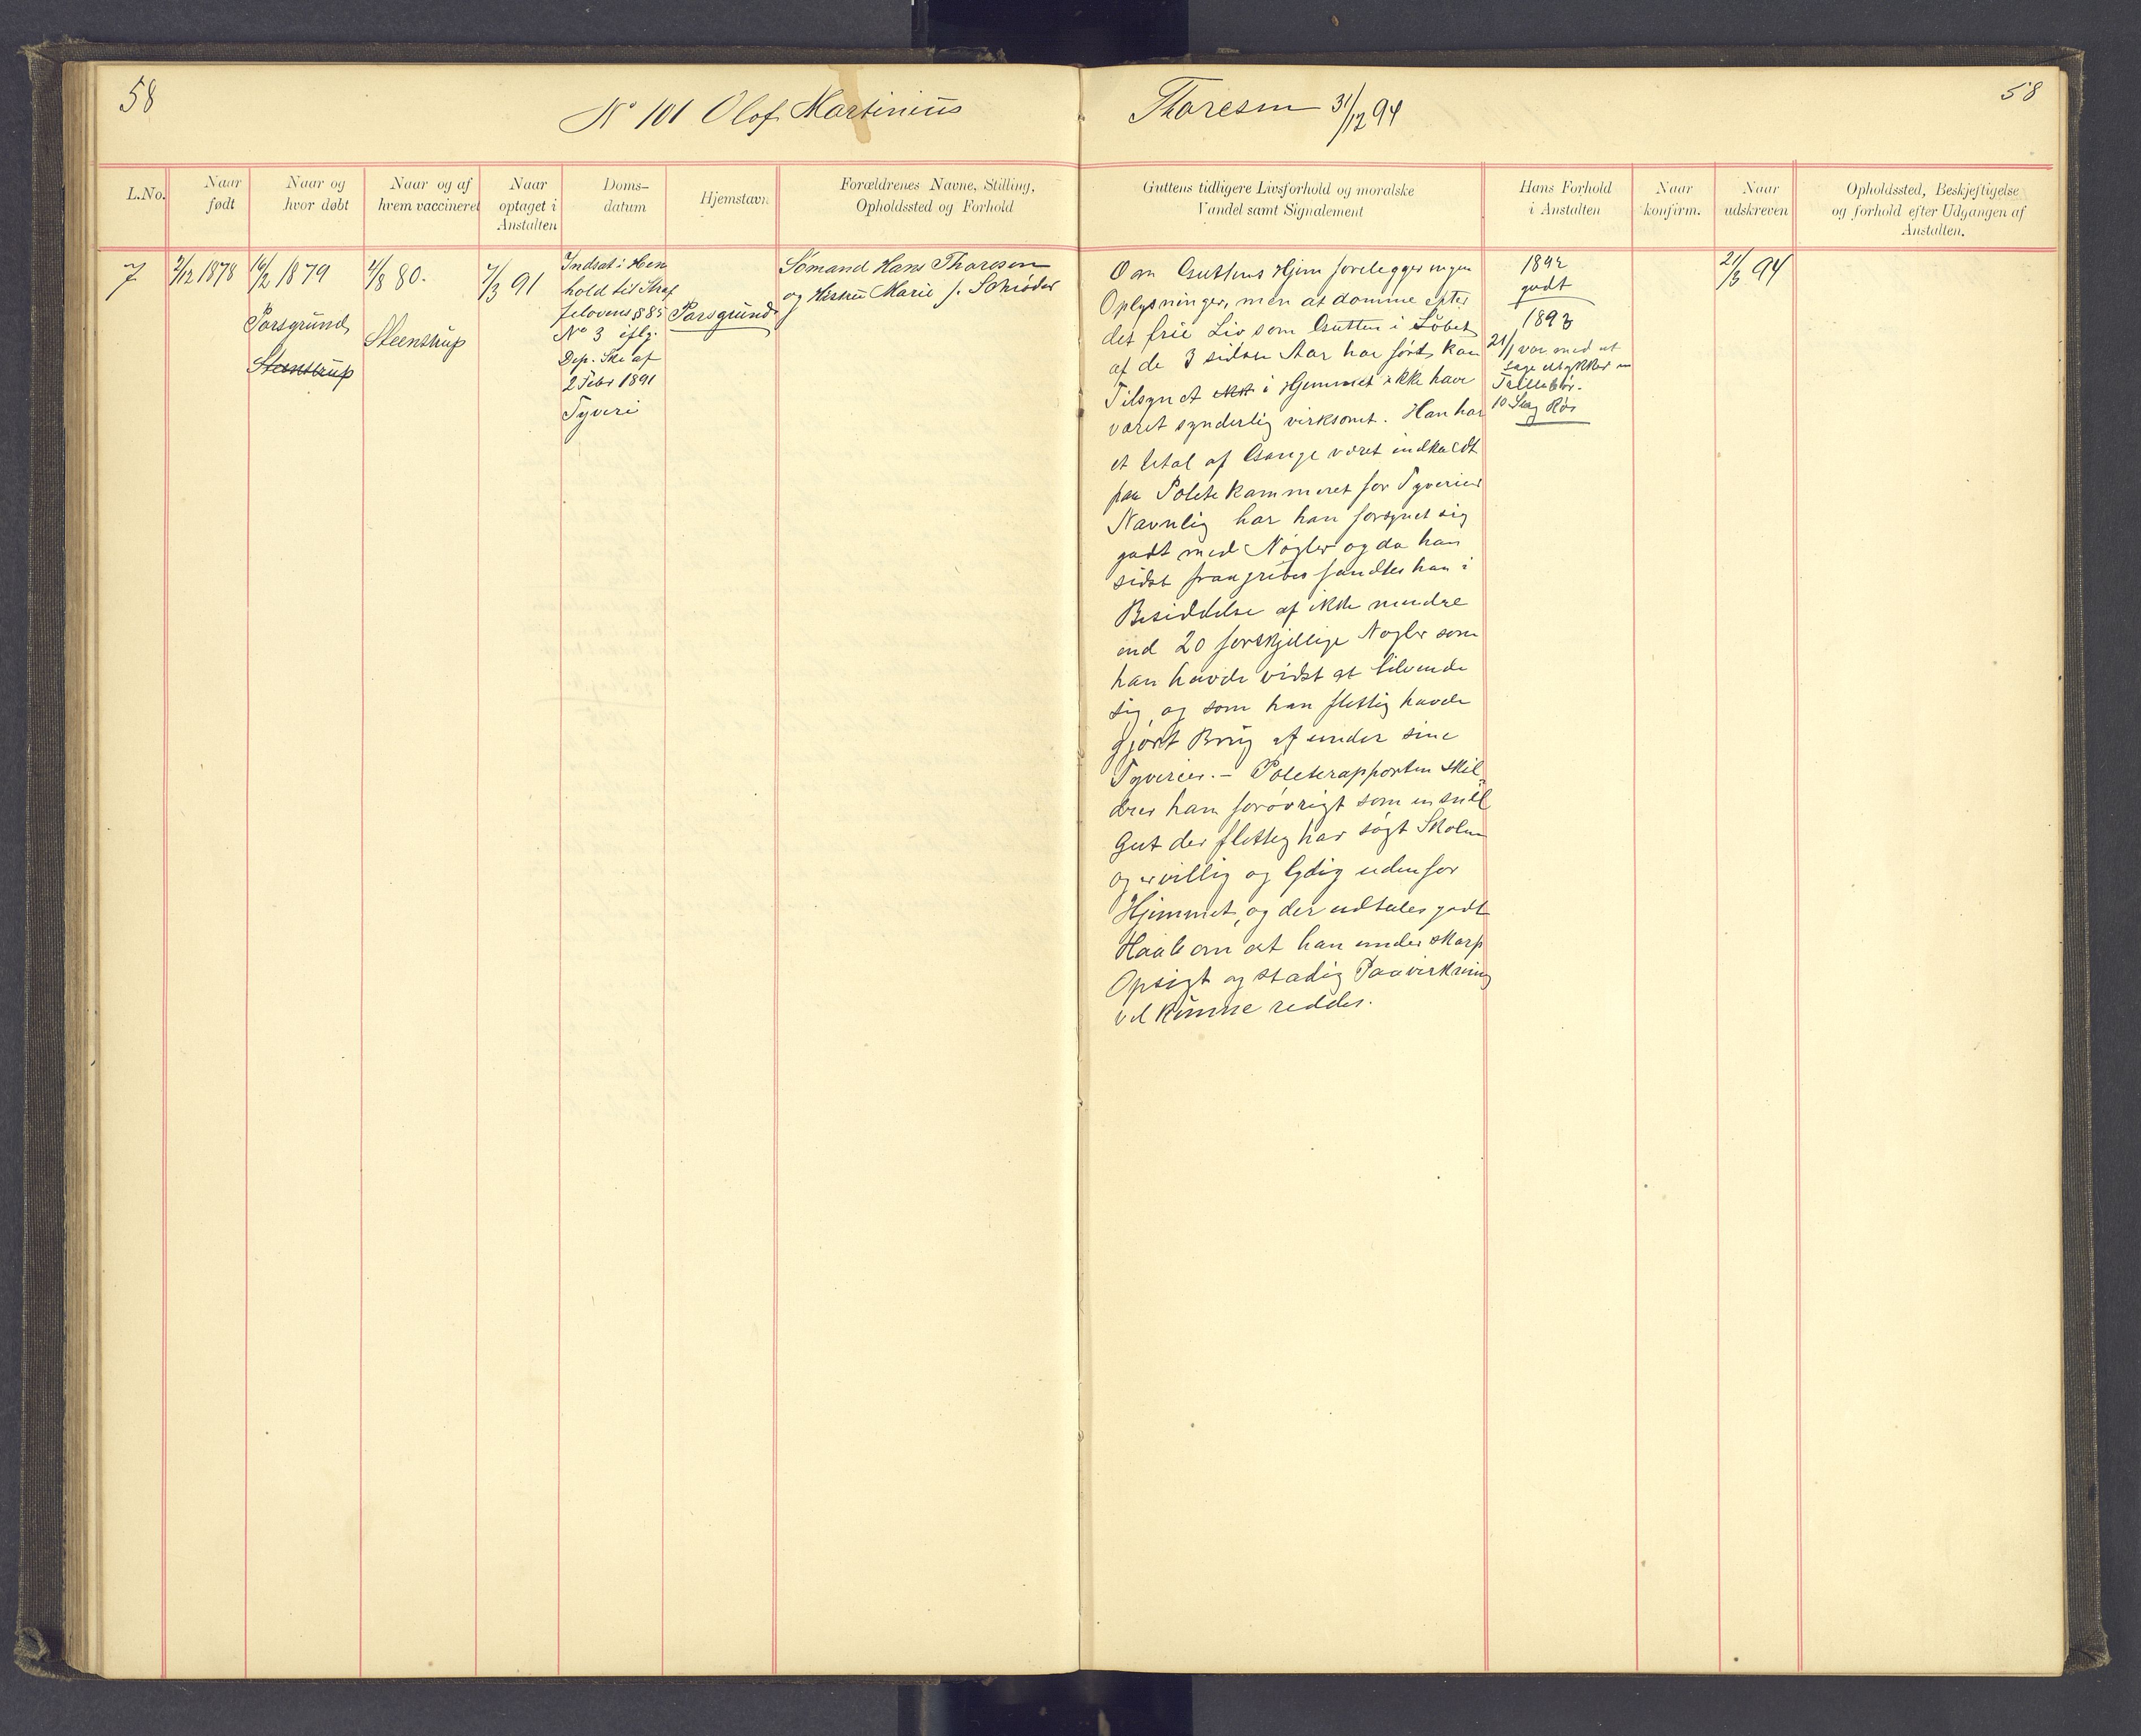 58
No 101 Olof Martinius
Thoresen 31/12 94
58
L.No.
Naar
født
Naar og
hvor døbt
Naar og af
hvem vaccineret
Naar
optaget i
Anstalten
Doms-
datum
Hjemstavn
Forældrenes Navne, Stilling,
Opholdssted og Forhold
Guttens tidligere Livsforhold og moralske
Vandel samt Signalement
Hans Forhold
i Anstalten
Naar
konfirm.
Naar
udskreven
Opholdssted, Beskjeftigelse
og forhold efter Udgangen af
Anstalten.
7
2/12 1878
16/2 1879
Porsgrund
Steenstrup
4/8 80.
Steenstrup
7/3 91
Indsat i Hen
hold til Straf
felovens § 85
No 3 iflg.
Dep. Skr af
2 Febr 1891
Tyveri
Porsgrund
Sømand Hans Thoresen
og Hustru Marie f. Schrøder
Om Guttens Hjem forelegger ingen
Oplysninger, men at dømme efter
det frie Liv som Gutten i Løbet
af de 3 sidste Aar har ført, kan
Tilsynet ikke i Hjemmet ikke have
været synderlig virksomt. Han har
et Utal af Gange været indkaldt
paa Politikammeret for Tyverier
Navnlig har han forsynet sig
godt med Nøgler og da han
sidst paagrebes fandtes han i
Besiddelse af ikke mindre
end 20 forskjellige Nøgler som
han havde vidst at tilvende
sig, og som han flittig havde
gjort Brug af under sine
Tyverier. - Politirapporten skil
drer ham forøvrigt som en snil
Gut der flittig har søgt Skolen
og er villig og lydig udenfor
Hjemmet, og der udtales godt
Haab om at han under skarp
Opsigt og stadig Paavirkning
vil kunne reddes.
1892
godt
1893
21/1 var med at
sage istykker en
Trillebør.
10 Slag Ris
21/3 94